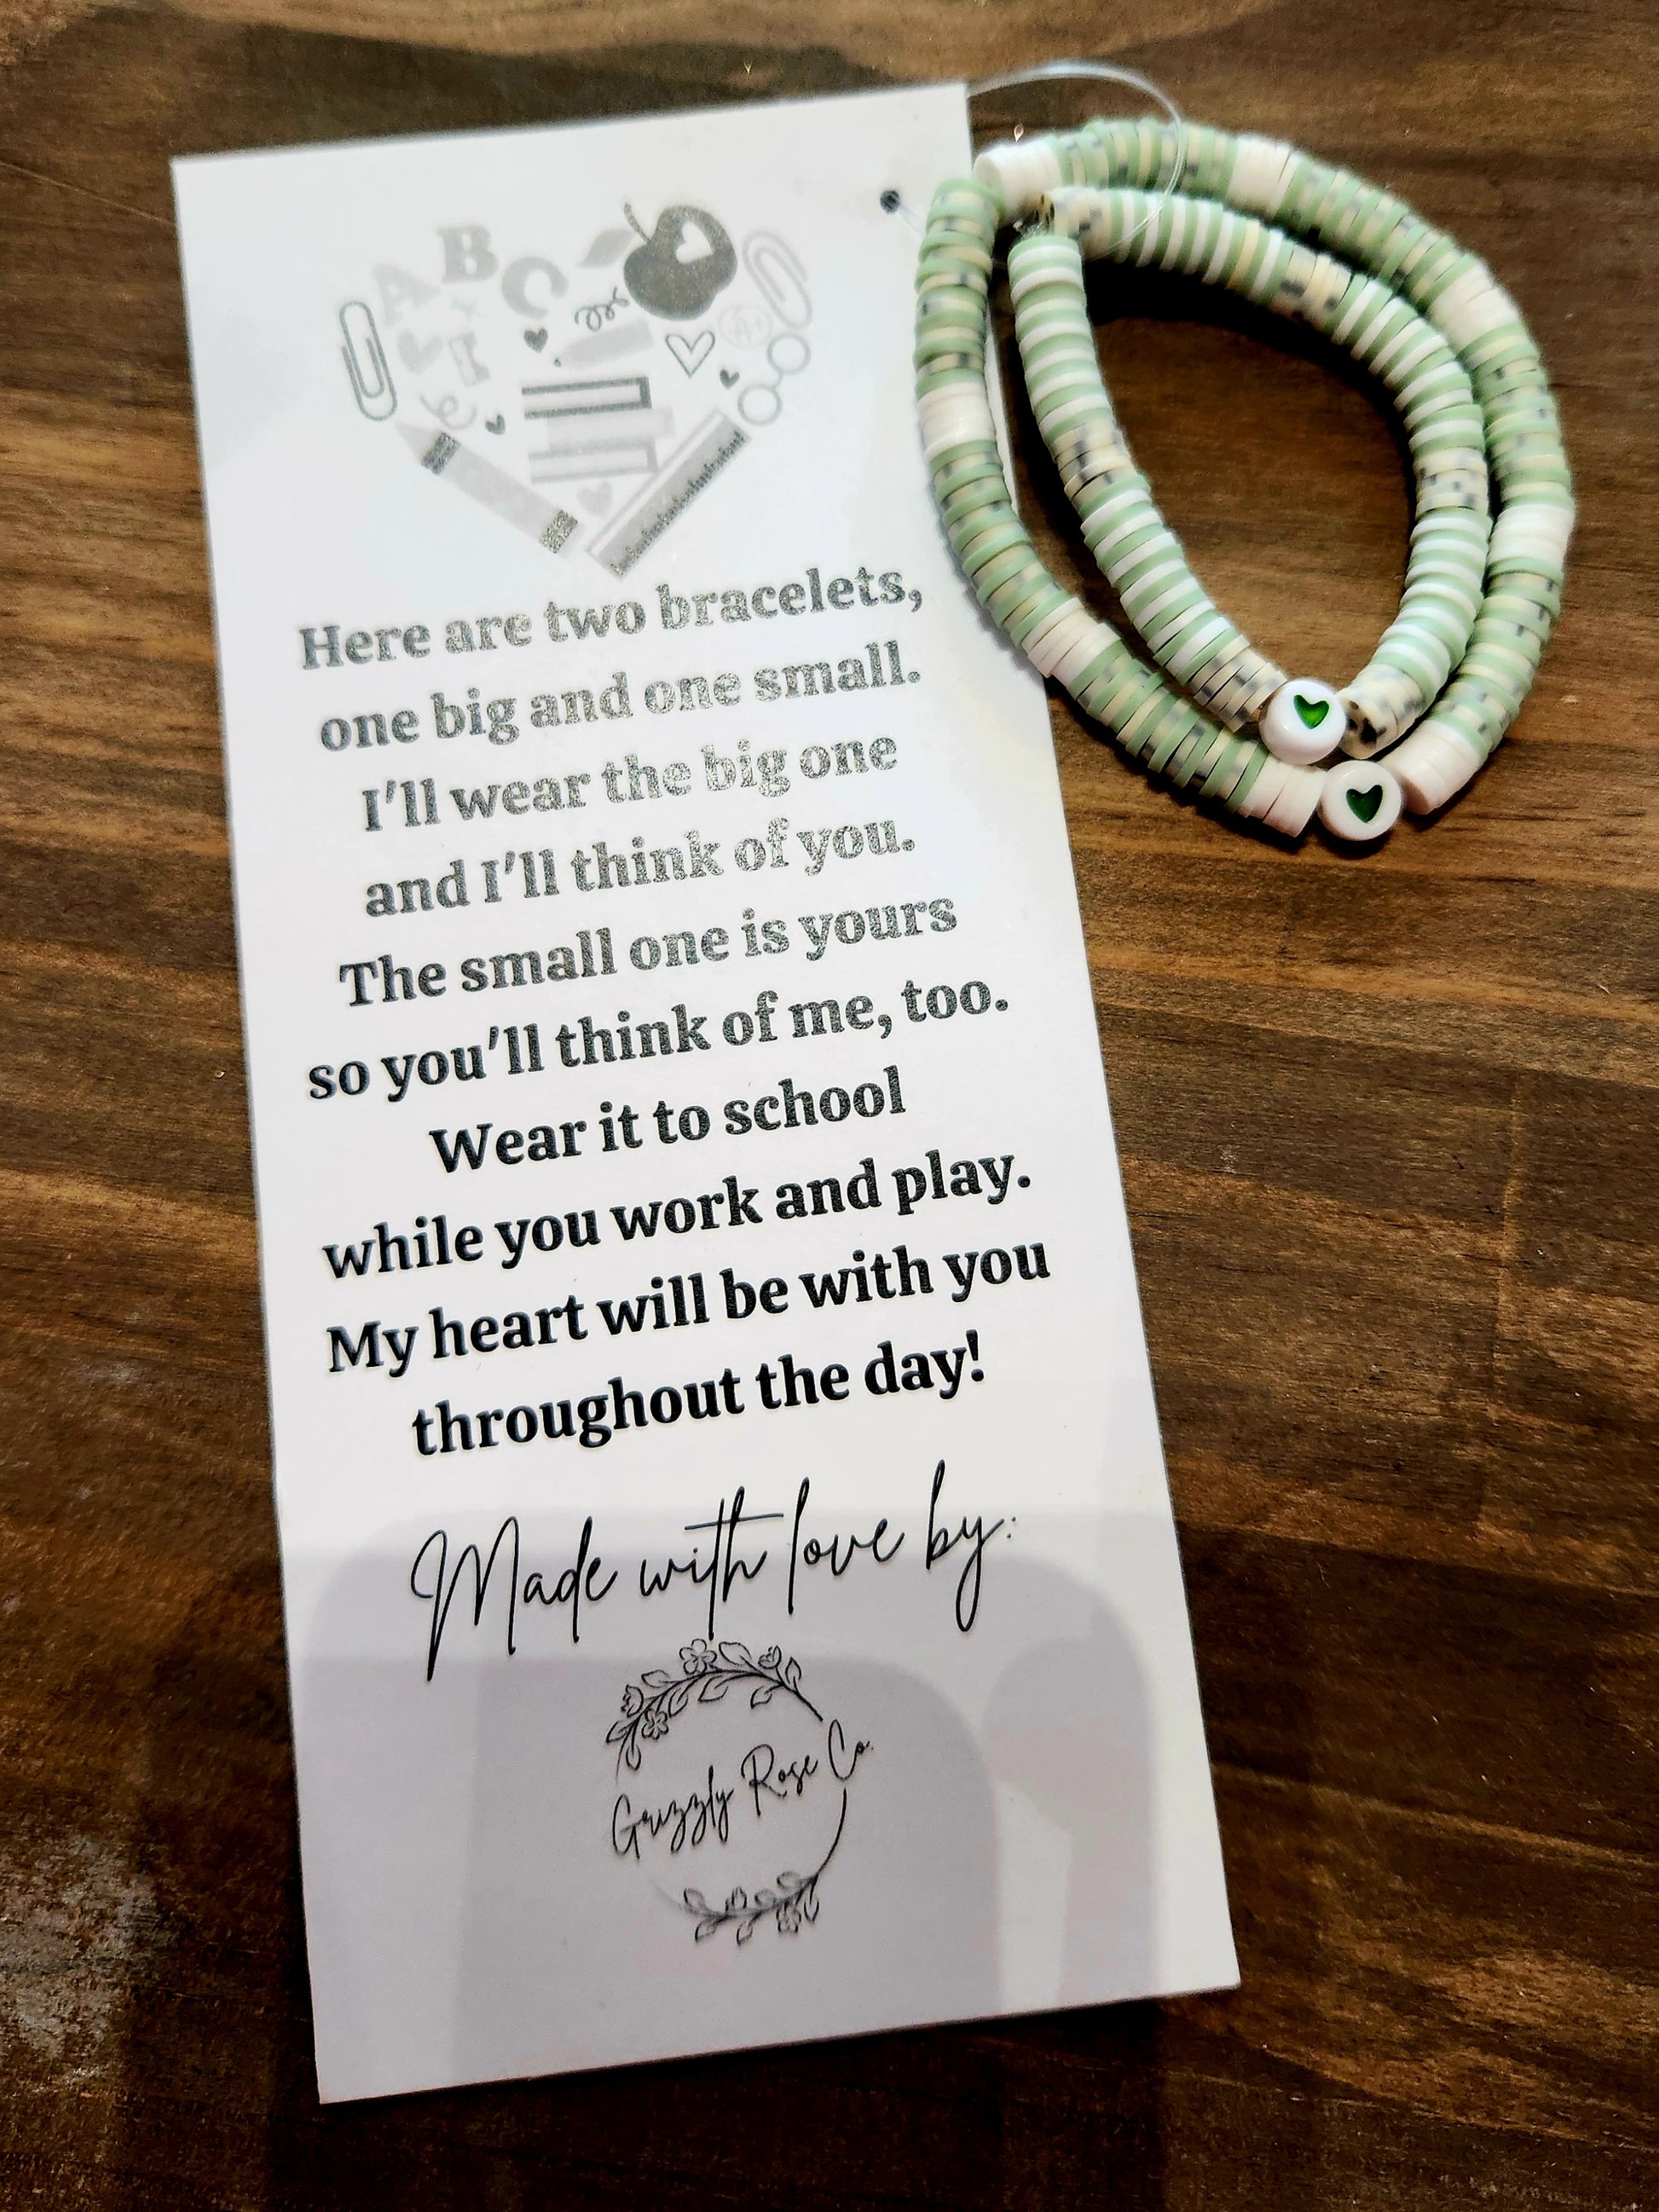 A B C
A+
Here are two bracelets,
one big and one small.
I'll wear the big one
and I'll think of you.
The small one is yours
so you'll think of me, too.
Wear it to school
while you work and play.
My heart will be with you
throughout the day!
Made with love by:
Grizzly Rose Co.